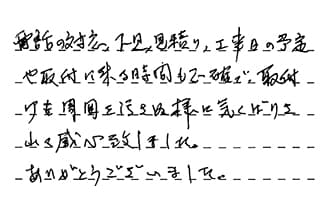 電話の対応、下見、見積り、工事日の予定
や取付に来る時間も正確で、取付
中も周囲を汚さぬ様に気くばりを
され感心致しました。
ありがとうございました。